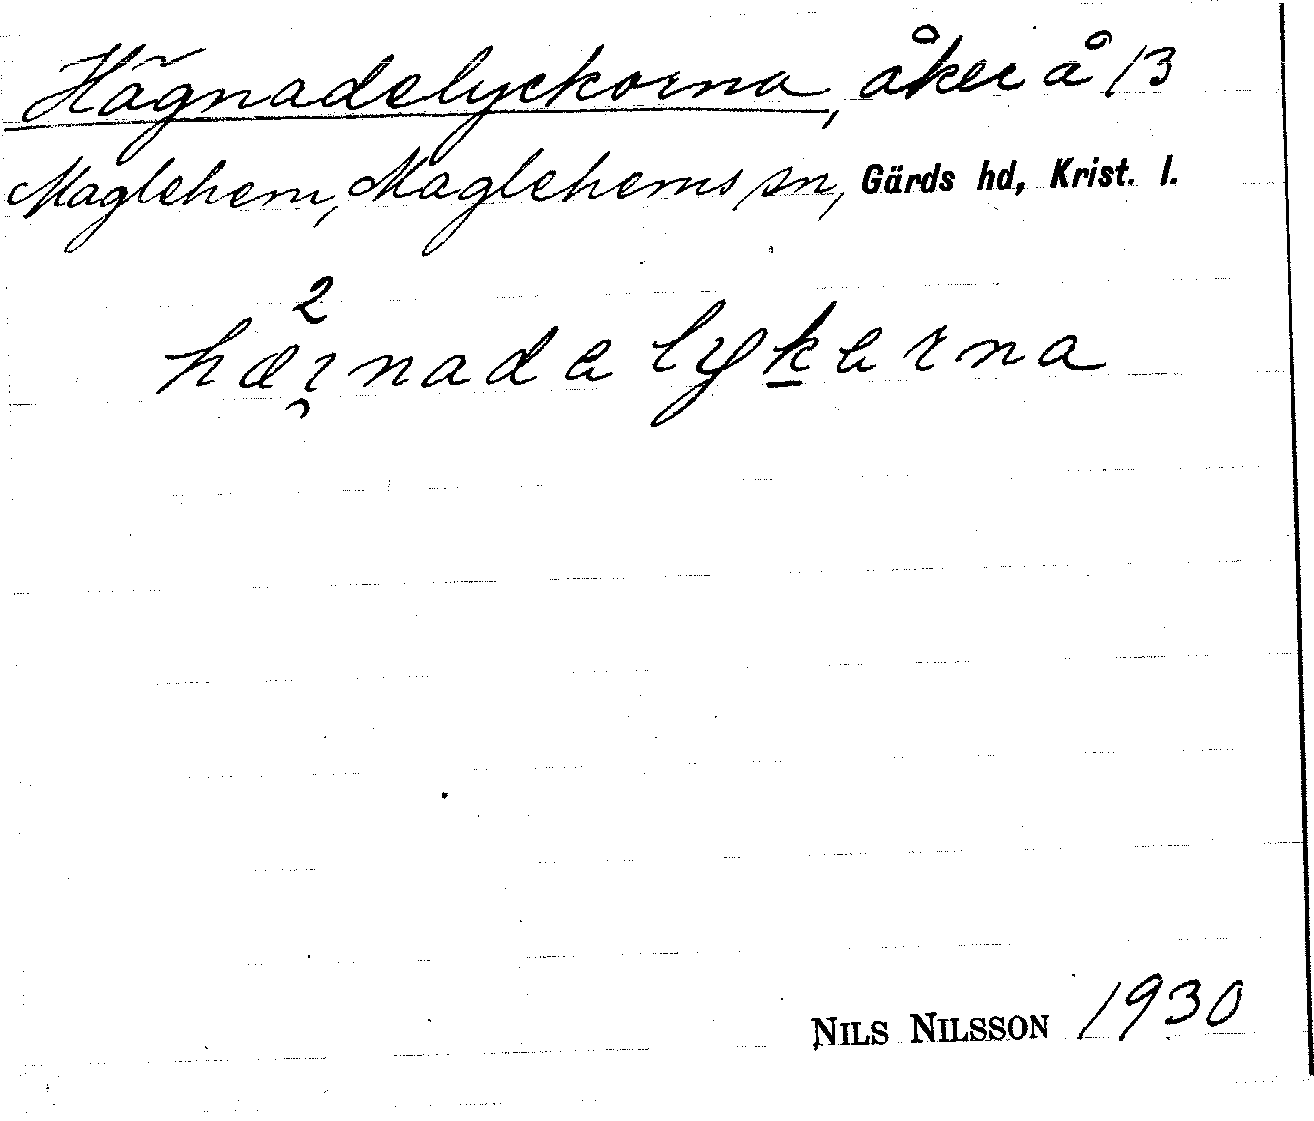 Hägnadelyckorna, åker å 13
Maglehem, Maglehems sn, Gärds hd, Krist. l.
2
hæi̯nadalyḵarna
NILS NILSSON 1930